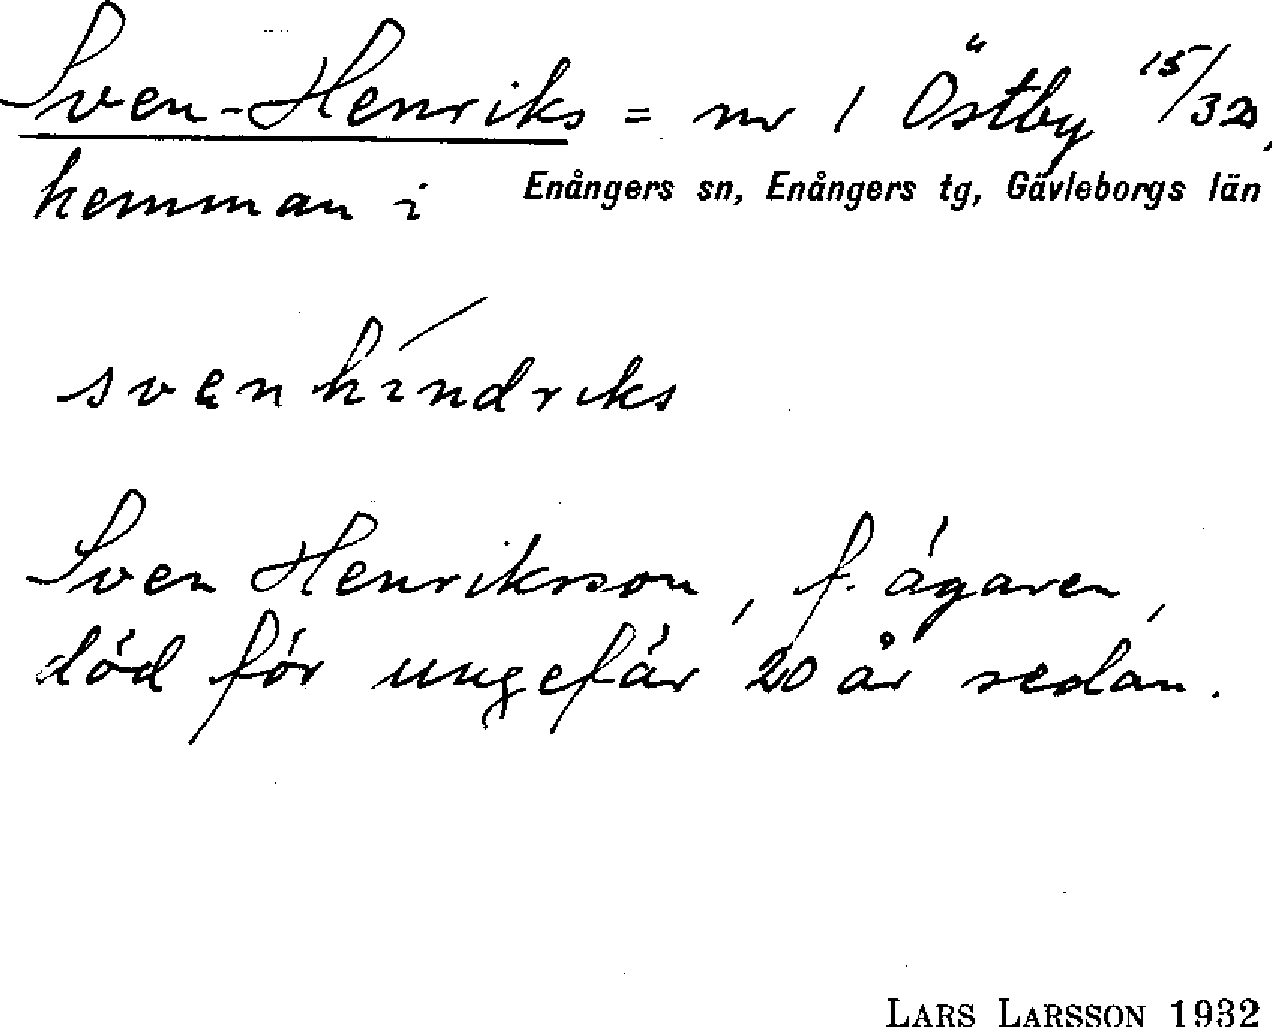 Sven-Henriks = nr 1 Östby 15/32,
hemman i Enångers sn, Enångers tg, Gävleborgs län
svenhíndriks
Sven Henriksson, f. ägaren,
död för ungefär 20 år sedan.
LARS LARSSON 1932